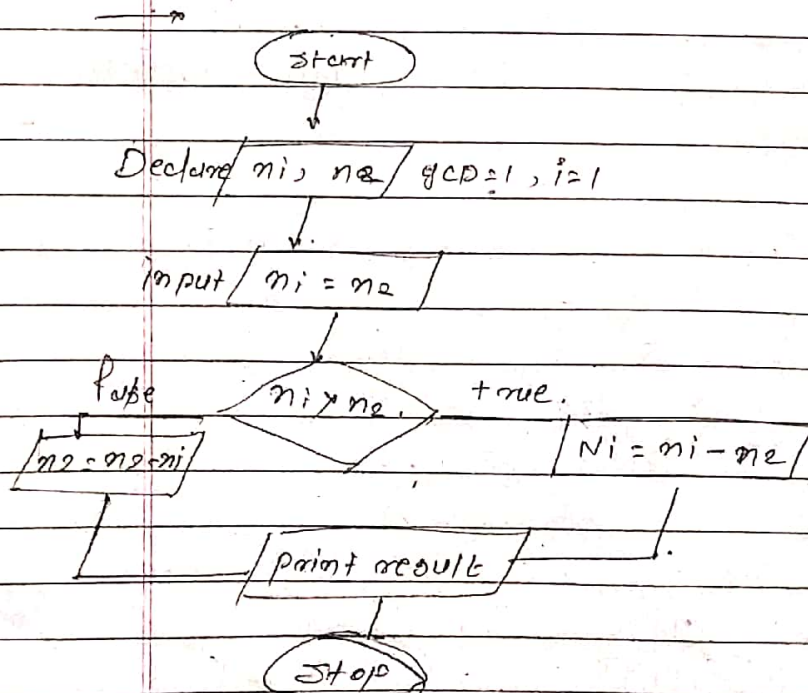 Start
Declare ni, n2 gCD=1, i=1
input ni = n2
false ni > n2. true.
n2 = n2-ni Ni = ni - n2
print result
Stop